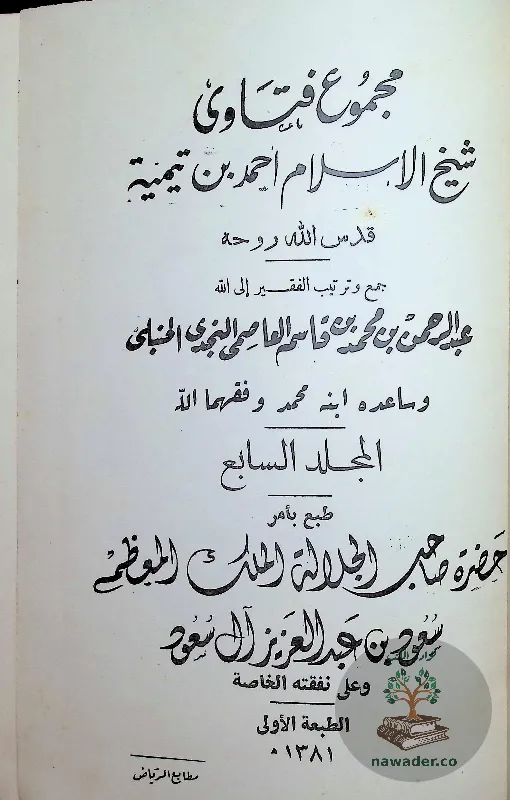 مجموع فتاوى
شيخ الاسلام احمد بن تيمية
قدس الله روحه
جمع وترتيب الفقير إلى الله
عبد الرحمن بن محمد بن قاسم العاصمي النجدي الحنبلي
وساعده ابنه محمد وفقهما الله
المجلد السابع
طبع بأمر
حضرة صاحب الجلالة الملك المعظم
سعود بن عبد العزيز آل سعود
وعلى نفقته الخاصة
الطبعة الأولى
١٣٨١ ه
مطابع الرياض
nawader.co